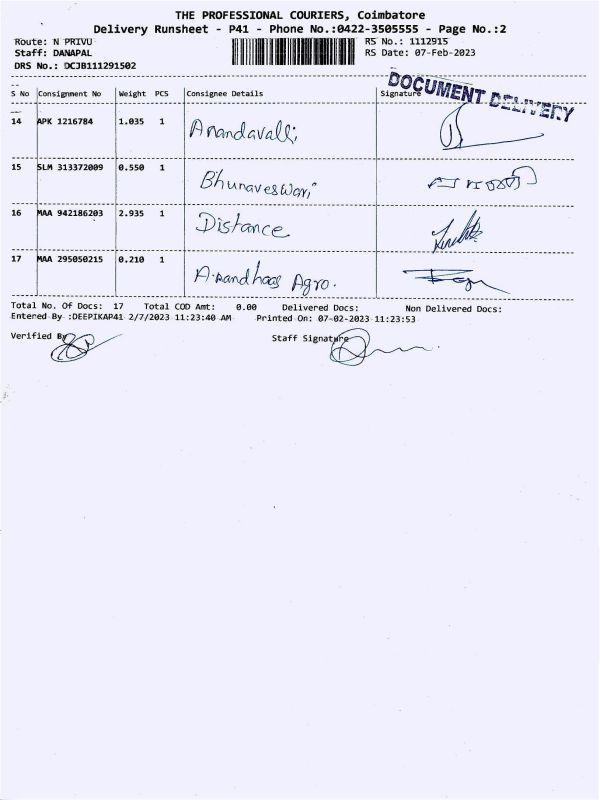 THE PROFESSIONAL COURIERS, Coimbatore
Delivery Runsheet - P41 - Phone No.:0422-3505555 - Page No.:2
Route: N PRIVU RS No.: 1112915
Staff: DANAPAL RS Date: 07-Feb-2023
DRS No.: DCJB111291502
DOCUMENT DELIVERY
S No Consignment No Weight PCS Consignee Details Signature
14 APK 1216784 1.035 1 Anandavalli
15 SLM 313372009 0.550 1 Bhunaveswari
16 MAA 942186203 2.935 1 Distance
17 MAA 295050215 0.210 1 Agro.
Total No. Of Docs: 17 Total COD Amt: 0.00 Delivered Docs: Non Delivered Docs:
Entered By :DEEPIKAP41 2/7/2023 11:23:40 AM Printed On: 07-02-2023 11:23:53
Verified By Staff Signature